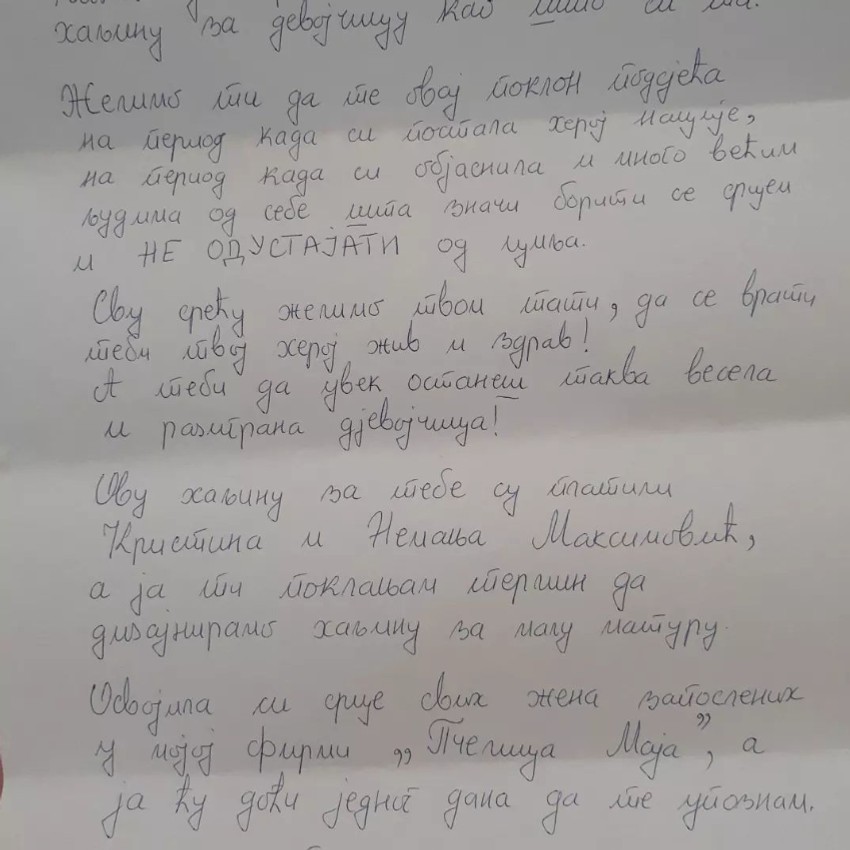 хаљину за девојчицу као што си ти.
Желимо ти да те овај поклон подсјећа
на период када си постала херој нације,
на период када си објаснила и много већим
људима од себе шта значи борити се срцем
и НЕ ОДУСТАЈАТИ од циља.
Сву срећу желимо твом тати, да се врати
теби твој херој жив и здрав!
А теби да увек останеш таква весела
и разиграна дјевојчица!
Ову хаљину за тебе су платили
Кристина и Немања Максимовић,
а ја ти поклањам термин да
дизајнирамо хаљину за малу матуру.
Освојила си срце свих жена запослених
у мојој фирми „Пчелица Маја”, а
ја ћу доћи једног дана да те упознам.